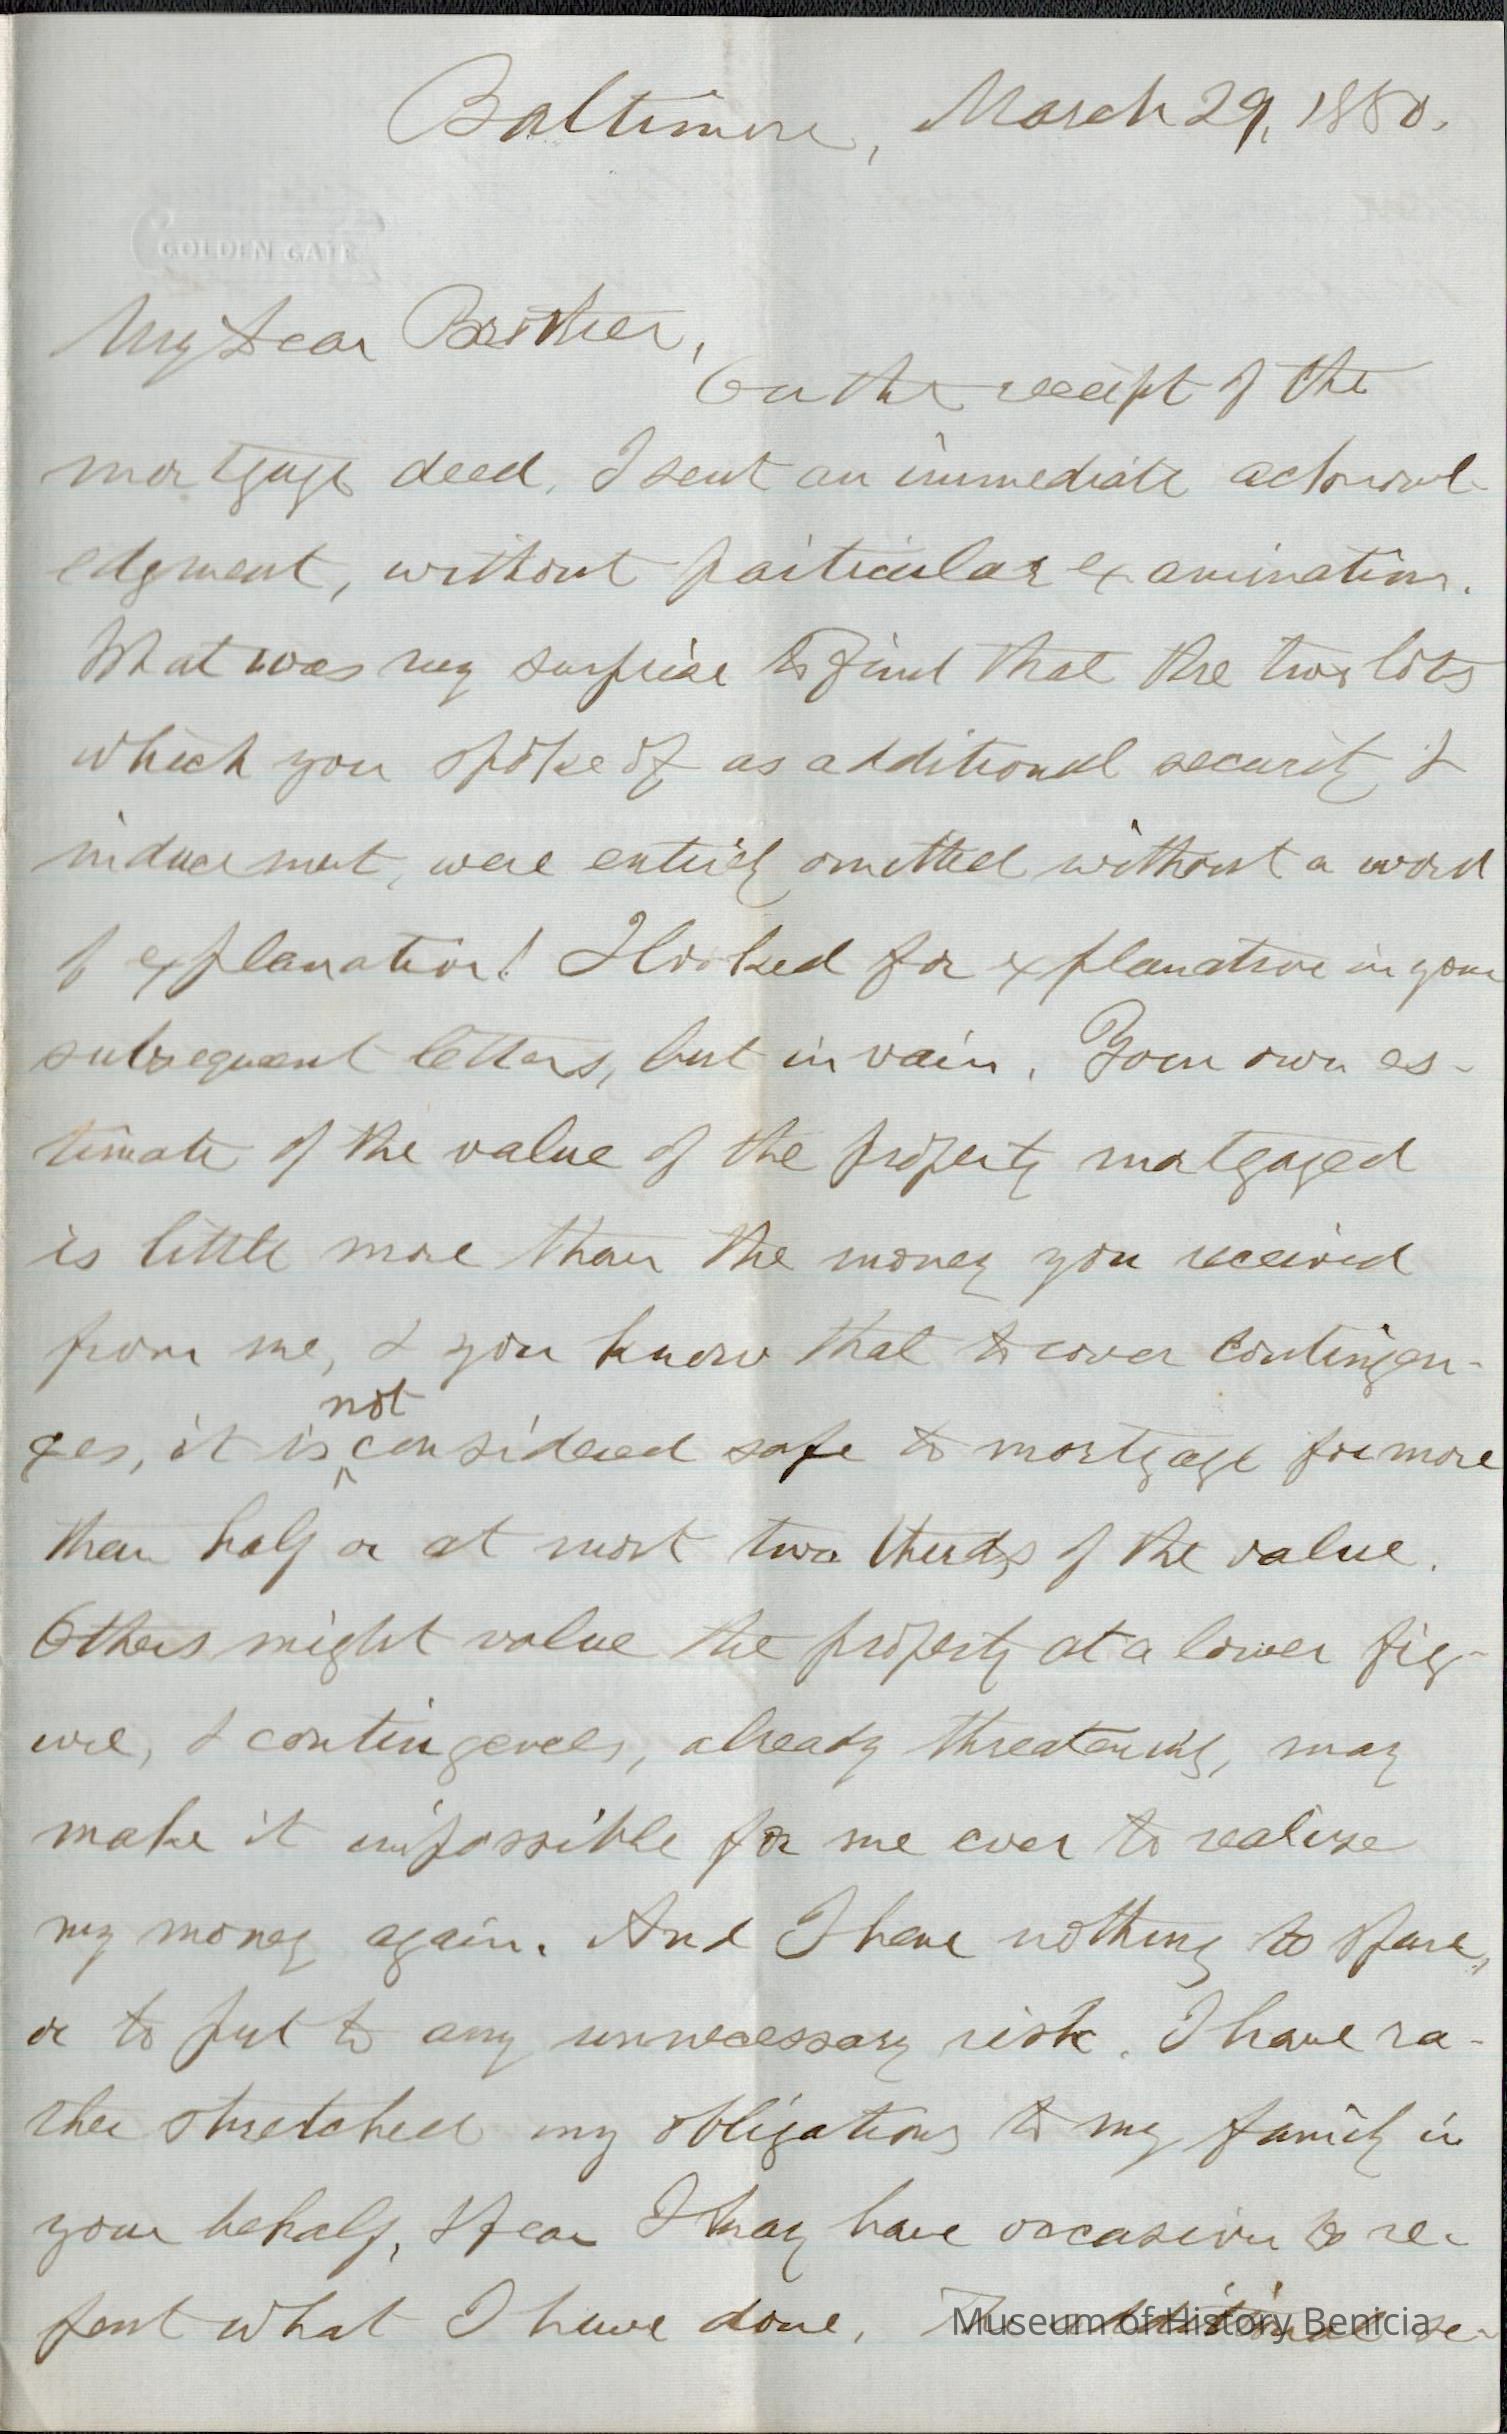 Baltimore, March 29, 1880.
GOLDEN GATE
My dear Brother,
On the receipt of the
mortgage deed, I sent an immediate acknowl-
edgment, without particular examination.
What was my surprise to find that the two lots
which you spoke of as additional security &
inducement, were entirely omitted without a word
of explanation! I looked for explanation in your
subsequent letters, but in vain. Your own es-
timate of the value of the property mortgaged
is little more than the money you received
from me, & you know that to cover contingen-
ces, it is not considered safe to mortgage for more
than half or at most two thirds of the value.
Others might value the property at a lower fig-
ure, & contingences, already threatening, may
make it impossible for me ever to realize
my money again. And I have nothing to spare,
or to put to any unnecessary risk. I have ra-
ther stretched my obligations to my family in
your behalf, & fear I may have occasion to re-
pent what I have done. The additional se-
Museum of History Benicia